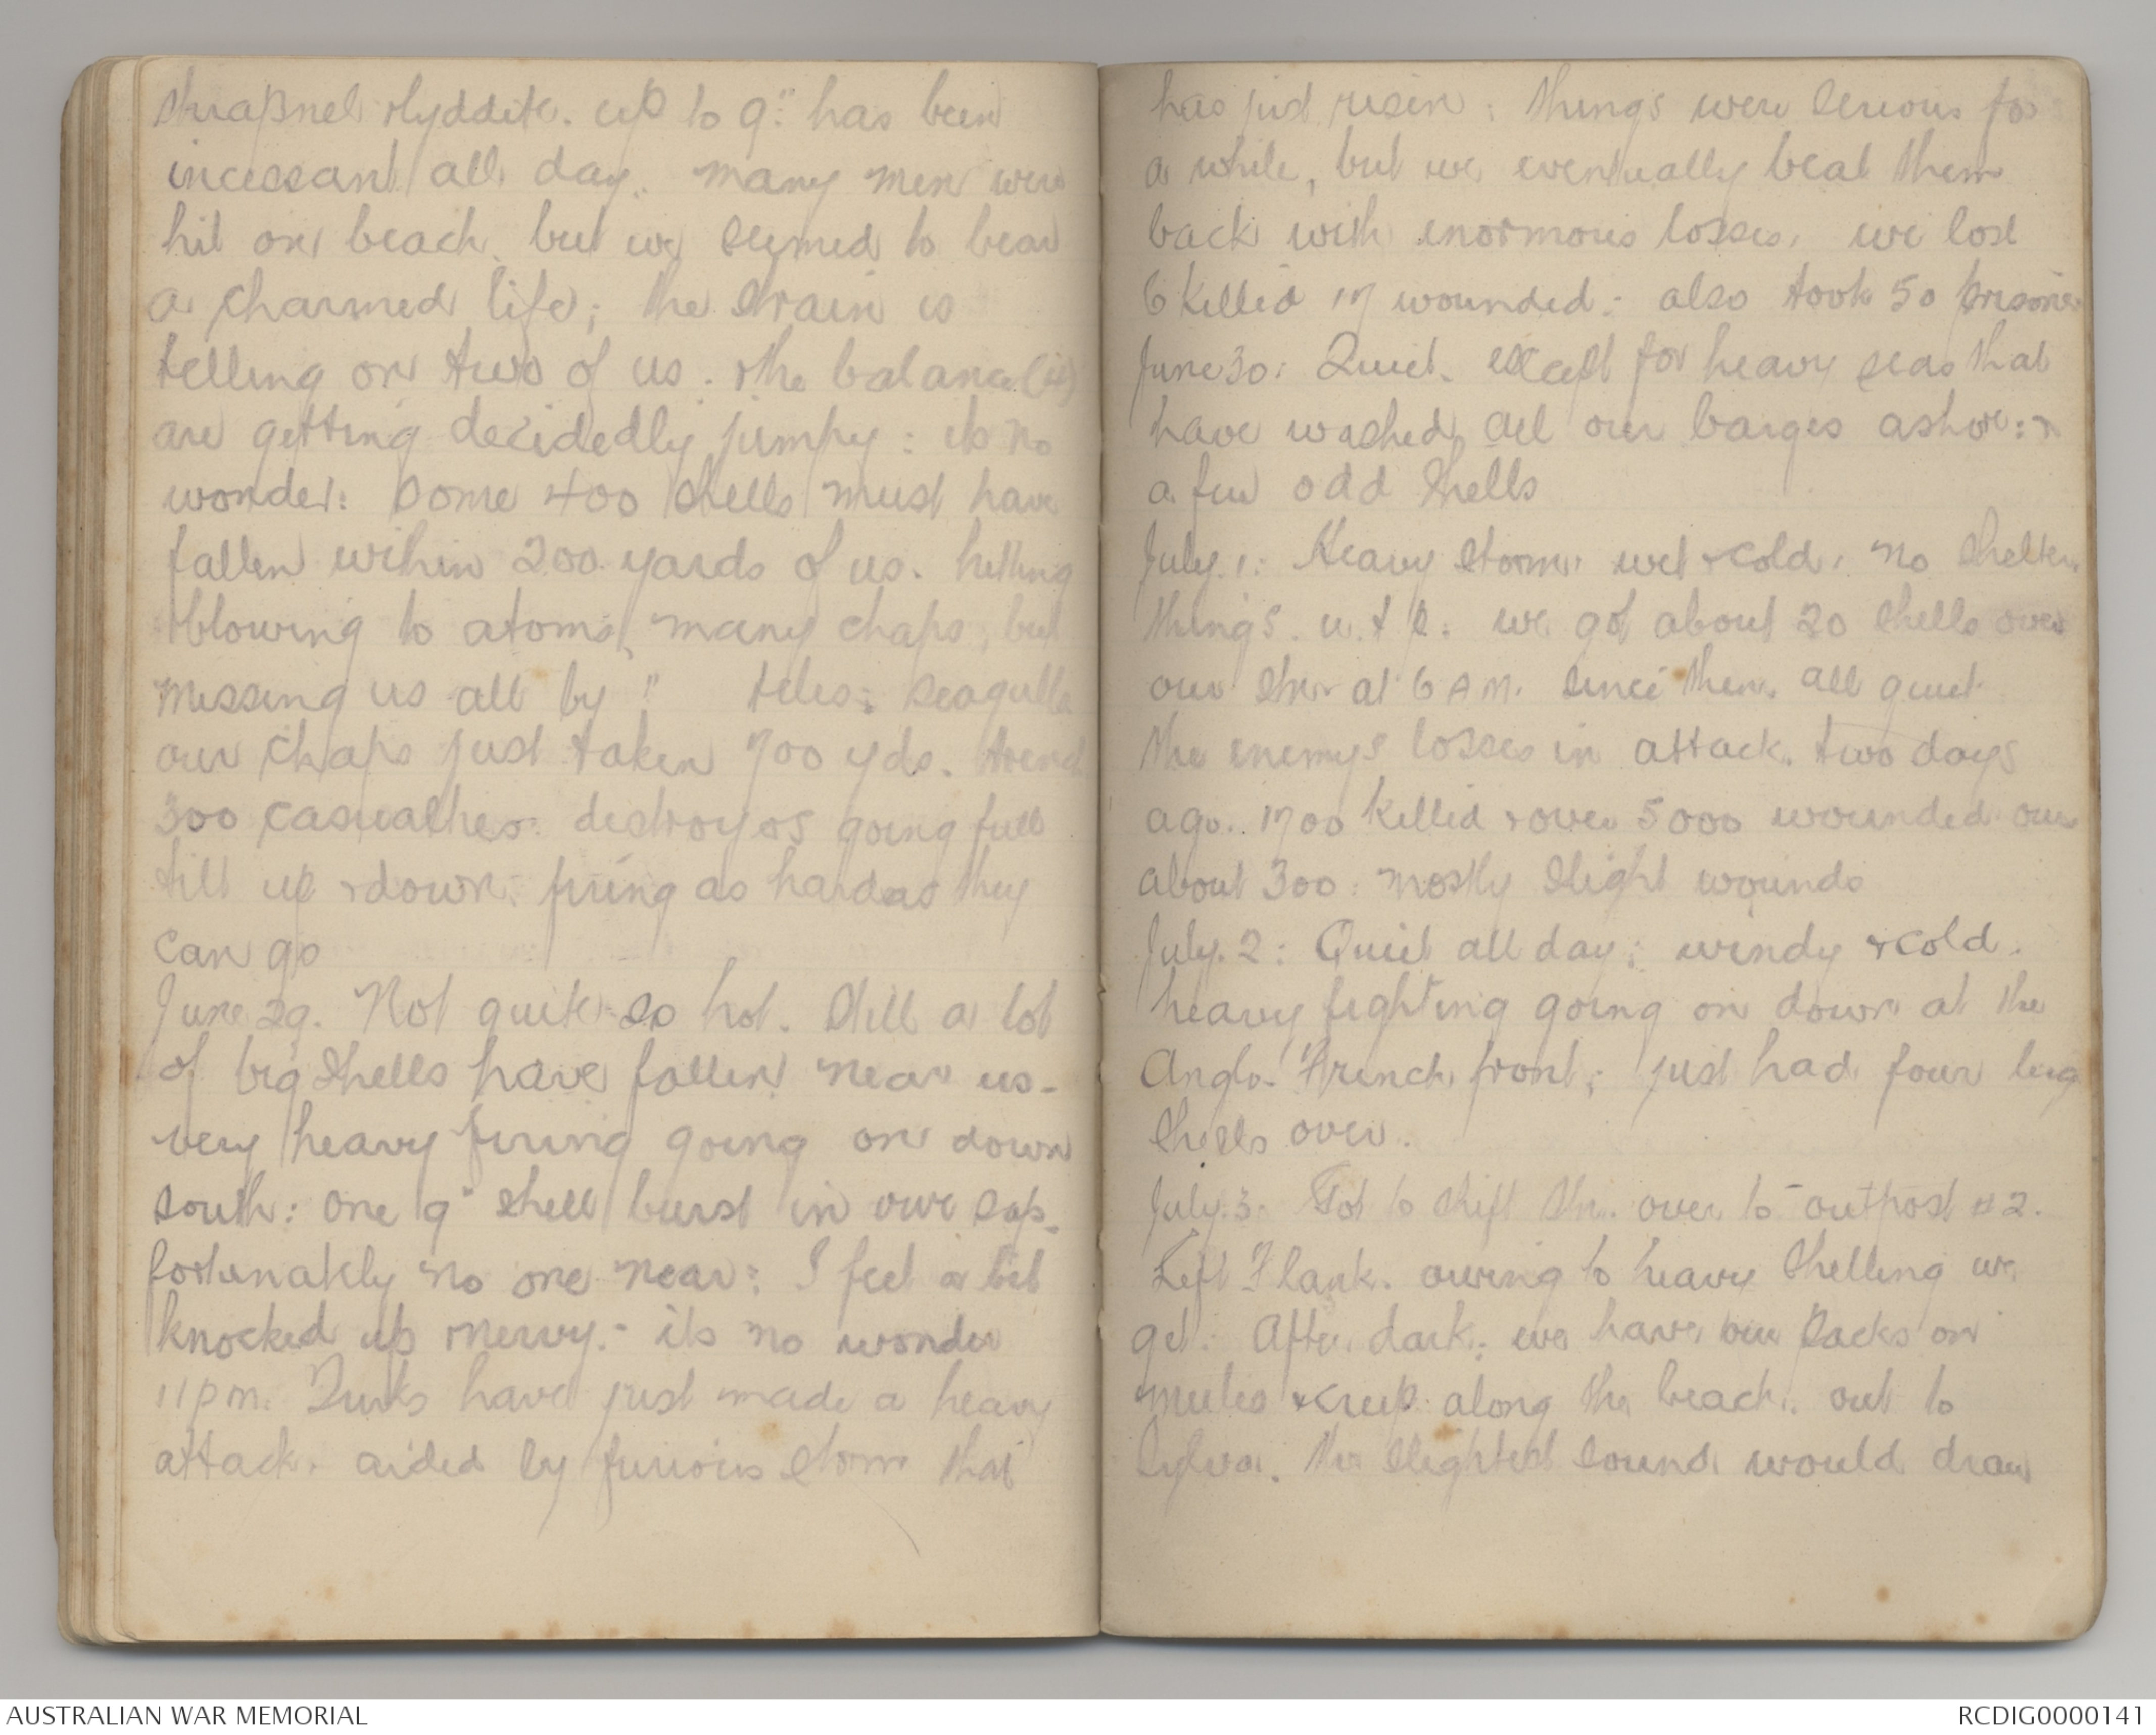 shrapnel & lyddite. up to 9." has been
incessant all day. many men were
hit on beach. but we seemed to bear
a charmed life; the strain is
telling on two of us. the balance (4)
are getting decidedly jumpy: its no
wonder: some 400 shells must have
fallen within 200 yards of us. hitting
& blowing to atoms, many chaps, but
missing us all by " teles: seagulls
our chaps just taken 700 yds. trench
300 casualties. destroyos going full
tilt up & down: firing as hard as they
can go
June 29. Not quite so hot. Still a lot
of big shells have fallen near us-
very heavy firing going on down
south: one 9" shell burst in our sap-
fortunately no one near: I feel a bit
knocked up & nervy:- its no wonder
11pm. Turks have just made a heavy
attack. aided by furious storm that
has just risen: things were serious for
a while, but we eventually beat them
back with enormous losses. we lost
6 killed 17 wounded: also took 50 prisoners
June 30: Quiet. except for heavy seas that
have washed all our barges ashore: &
a few odd shells
July. 1: Heavy storm. wet & cold. no shelter.
things. u. & c. we got about 20 shells over
our stn. at 6 AM. since then. all quiet
the enemys losses in attack. two days
ago. 1700 killed & over 5000 wounded ours
about 300: mostly slight wounds
July. 2: Quiet all day; windy & cold.
heavy fighting going on down at the
Anglo-French front; just had four big
shells over.
July. 3. Got to shift stn. over to outpost #2.
Left Flank. owing to heavy shelling we
get. After dark: we have our packs on
mules & creep along the beach. out to
the slightest sound would draw
AUSTRALIAN WAR MEMORIAL
RCDIG0000141